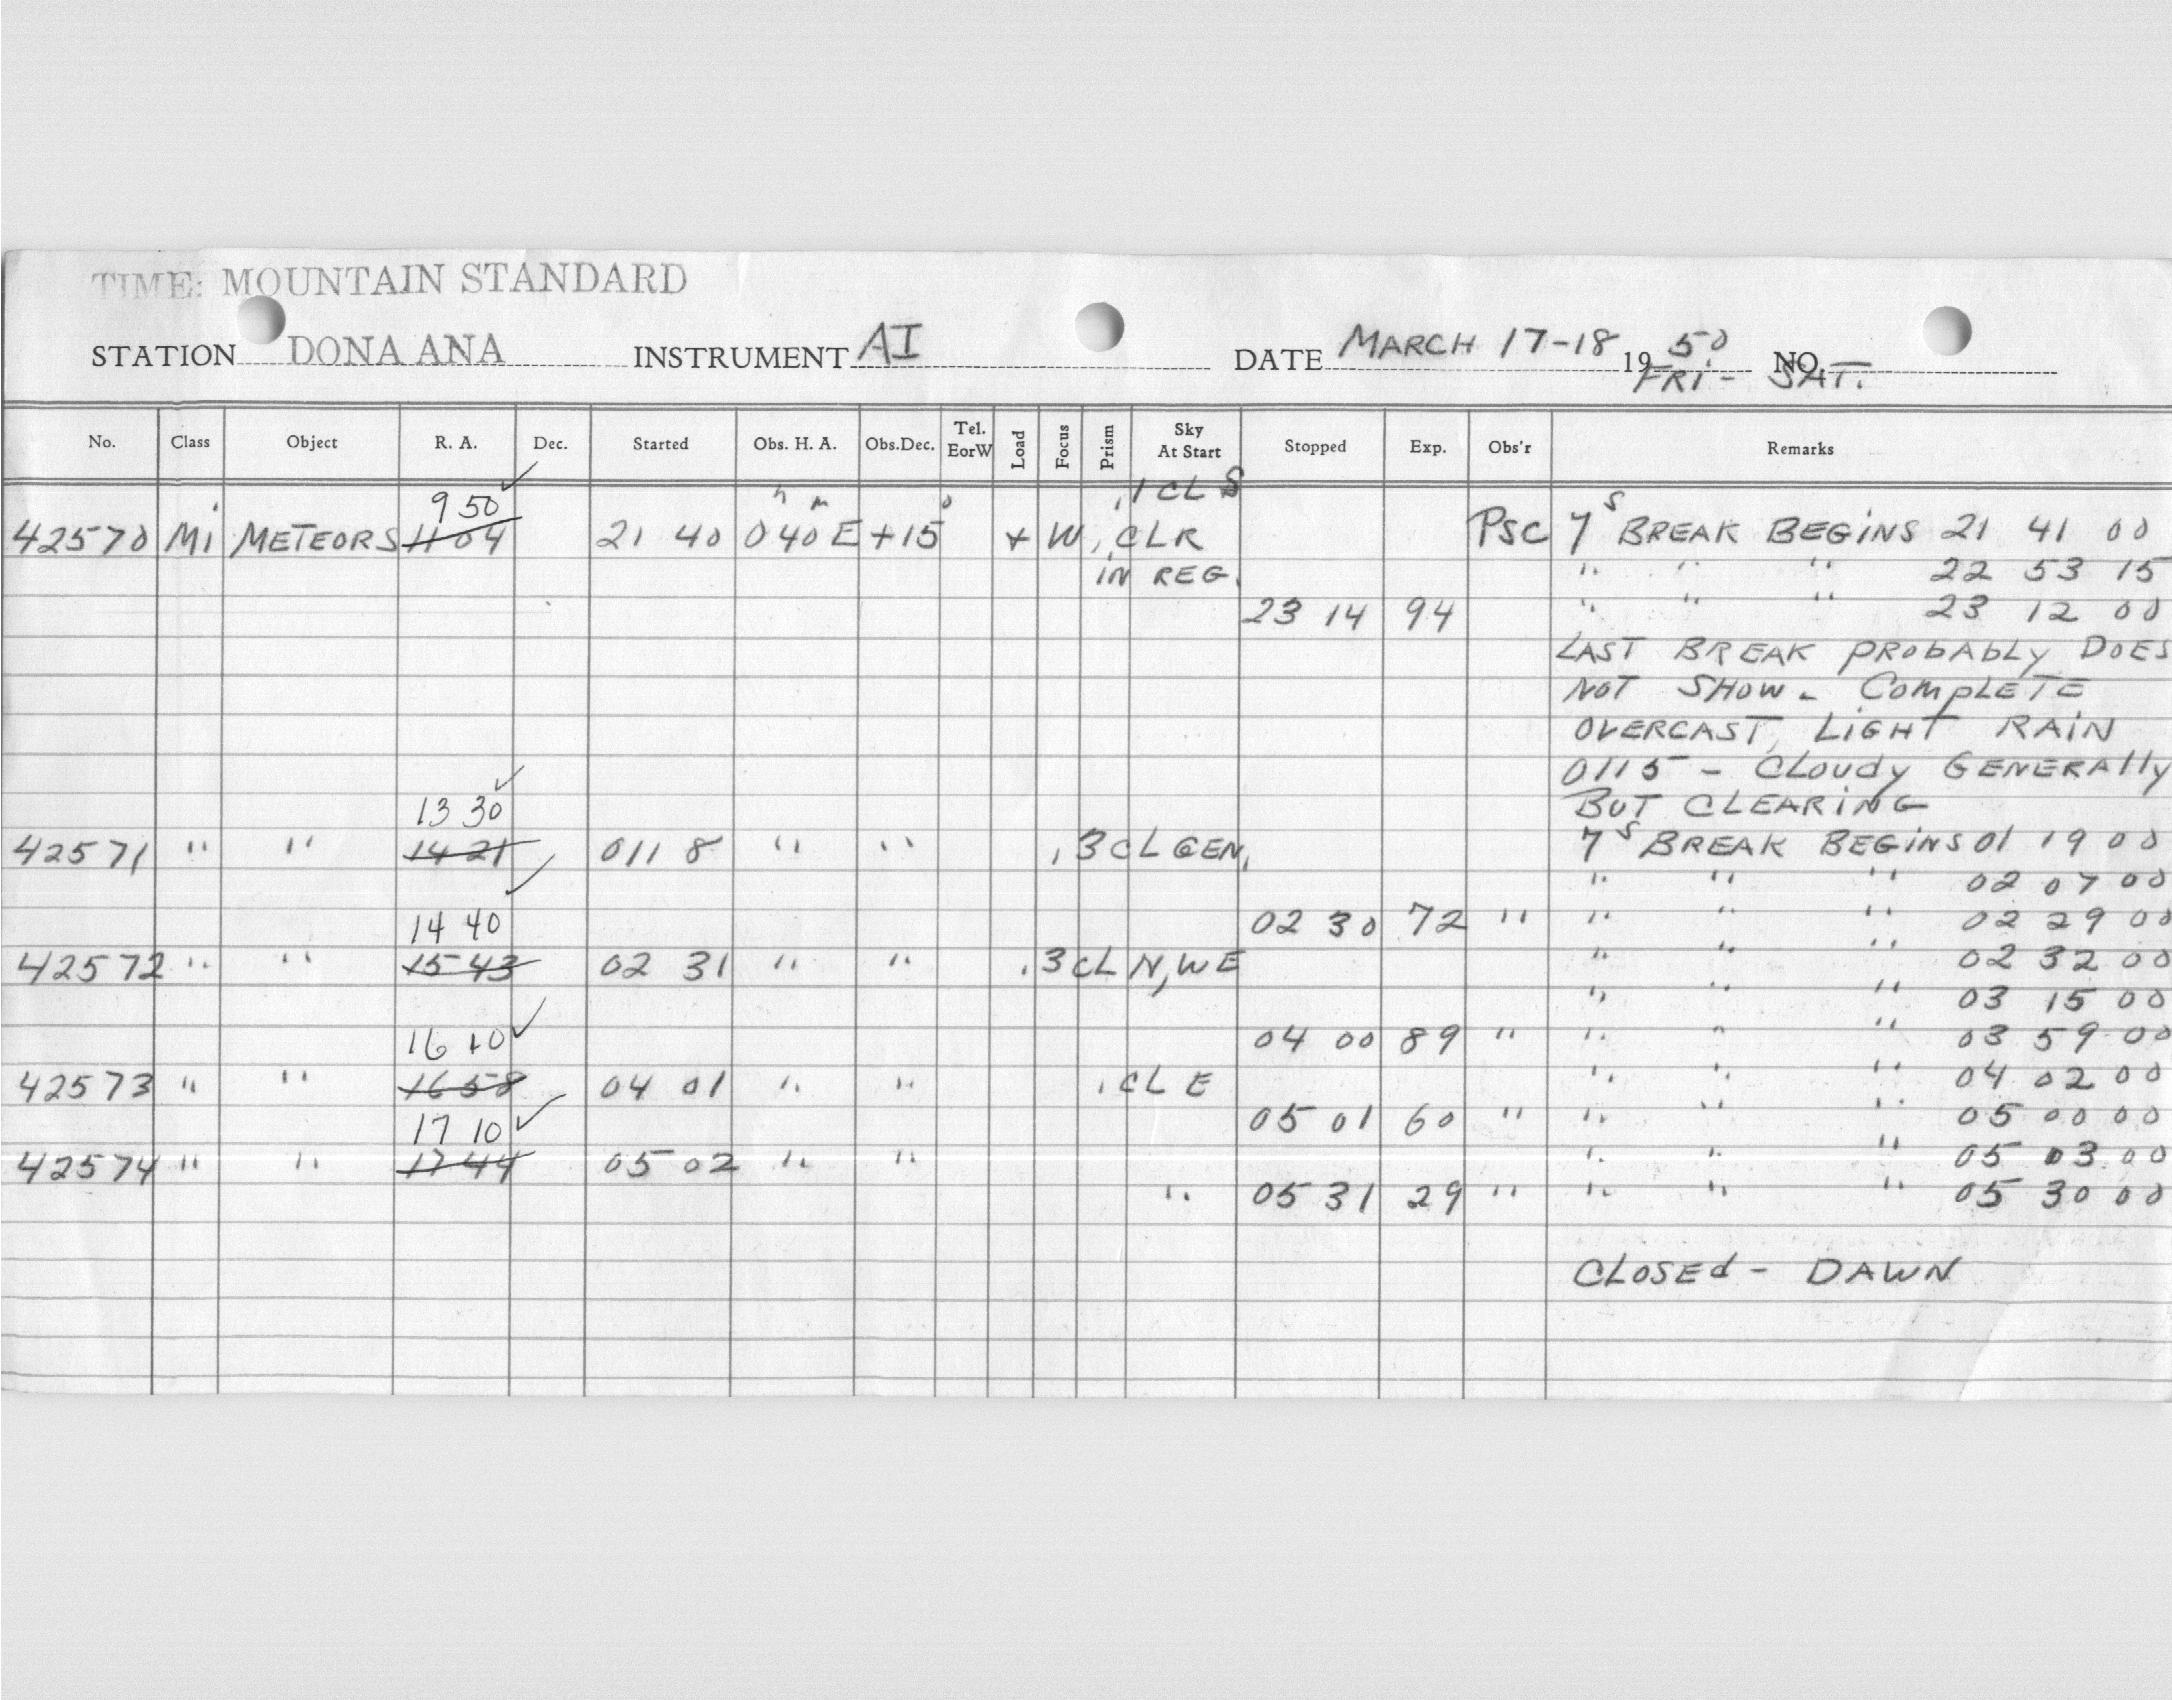 TIME: MOUNTAIN STANDARD
STATION DONA ANA INSTRUMENT AI DATE MARCH 17-18 1950 NO.
FRI - SAT.
No. Class Object R. A. Dec. Started Obs. H. A. Obs.Dec. Tel. EorW Load Focus Prism Sky At Start Stopped Exp. Obs'r Remarks
9 50 ✓ h m o .1 CL S
42570 Mi METEORS 11 04 21 40 0 40 E +15 + W , CLR PSC 7s BREAK BEGINS 21 41 00
IN REG. " " " 22 53 15
23 14 94 " " " 23 12 00
LAST BREAK PROBABLY DOES
NOT SHOW - COMPLETE
OVERCAST, LIGHT RAIN
0115 - CLOUDY GENERALLY
13 30 ✓ BUT CLEARING
42571 " " 14 21 0118 " " .3 CL GEN. 7s BREAK BEGINS 01 19 00
" " " 02 07 00
14 40 ✓ 02 30 72 " " " " 02 29 00
42572 " " 15 43 02 31 " " .3 CL N, W E " " " 02 32 00
" " " 03 15 00
16 10 ✓ 04 00 89 " " " " 03 59 00
42573 " " 16 58 04 01 " " . CL E " " " 04 02 00
17 10 ✓ 05 01 60 " " " " 05 00 00
42574 " " 17 44 05 02 " " " " " 05 03 00
" 05 31 29 " " " " 05 30 00
CLOSED - DAWN